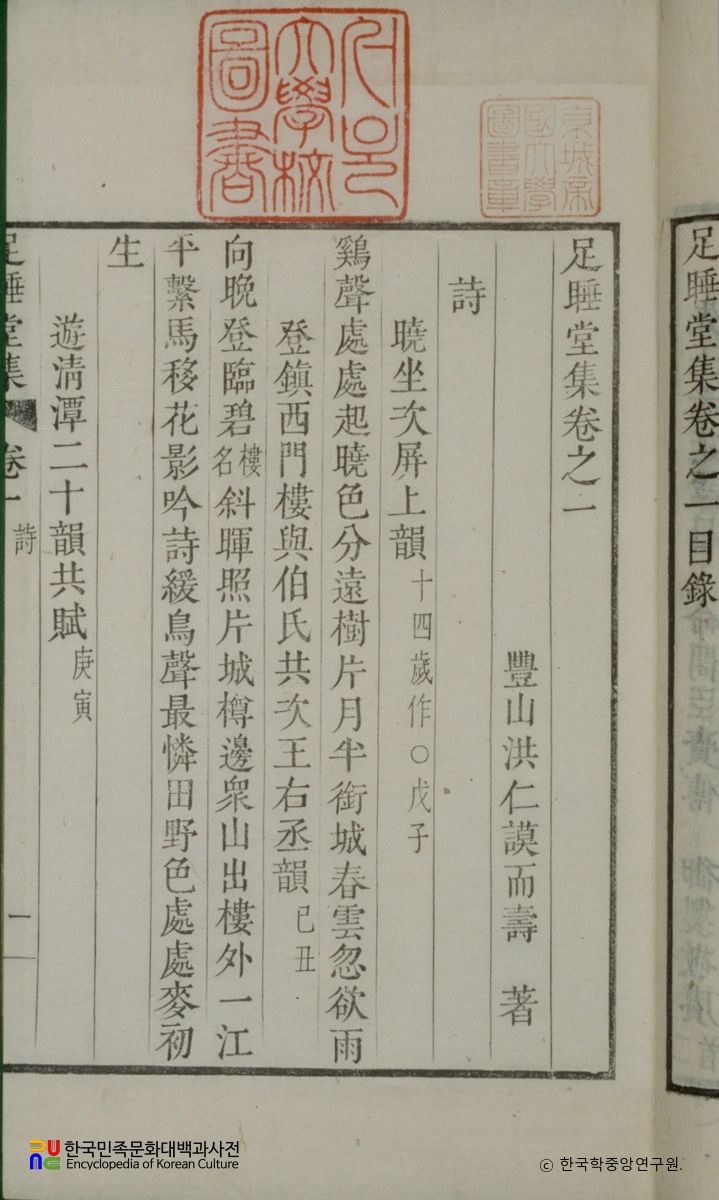 足睡堂集卷之一目錄
足睡堂集卷之一
豐山洪仁謨而壽 著
詩
曉坐次屏上韻 十四歲作○戊子
鷄聲處處起曉色分遠樹片月半銜城春雲忽欲雨
登鎮西門樓與伯氏共次王右丞韻 己丑
向晚登臨碧樓名斜暉照片城樽邊衆山出樓外一江
平繫馬移花影吟詩緩鳥聲最憐田野色處處麥初
生
遊淸潭二十韻共賦 庚寅
足睡堂集 卷一 詩 一
東城帝
國大學
圖書章
大學校
圖書
한국민족문화대백과사전
Encyclopedia of Korean Culture
© 한국학중앙연구원.